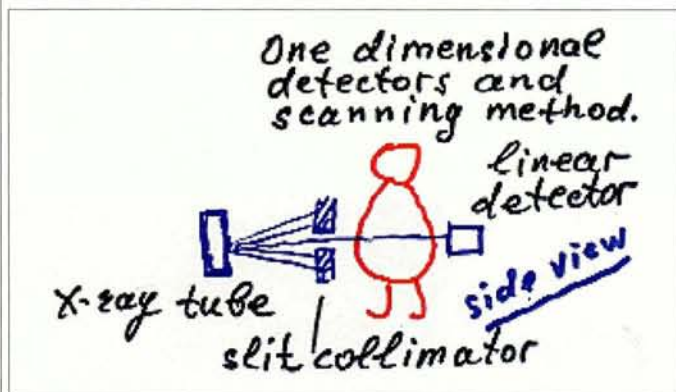 One dimensional
detectors and
scanning method.
linear
detector
side view
X-ray tube
slit collimator